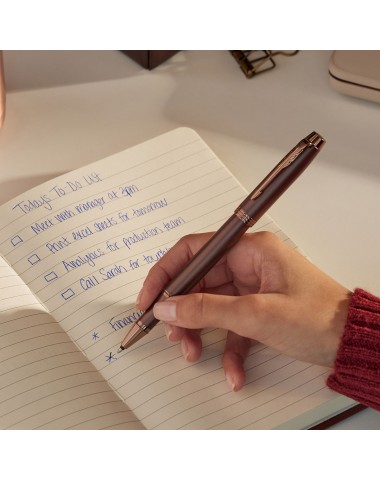 Todays To Do List
Meet with manager at 3pm
Print excel sheets for tomorrow
Analytics for production team
Call Sarah for
* Financ
*